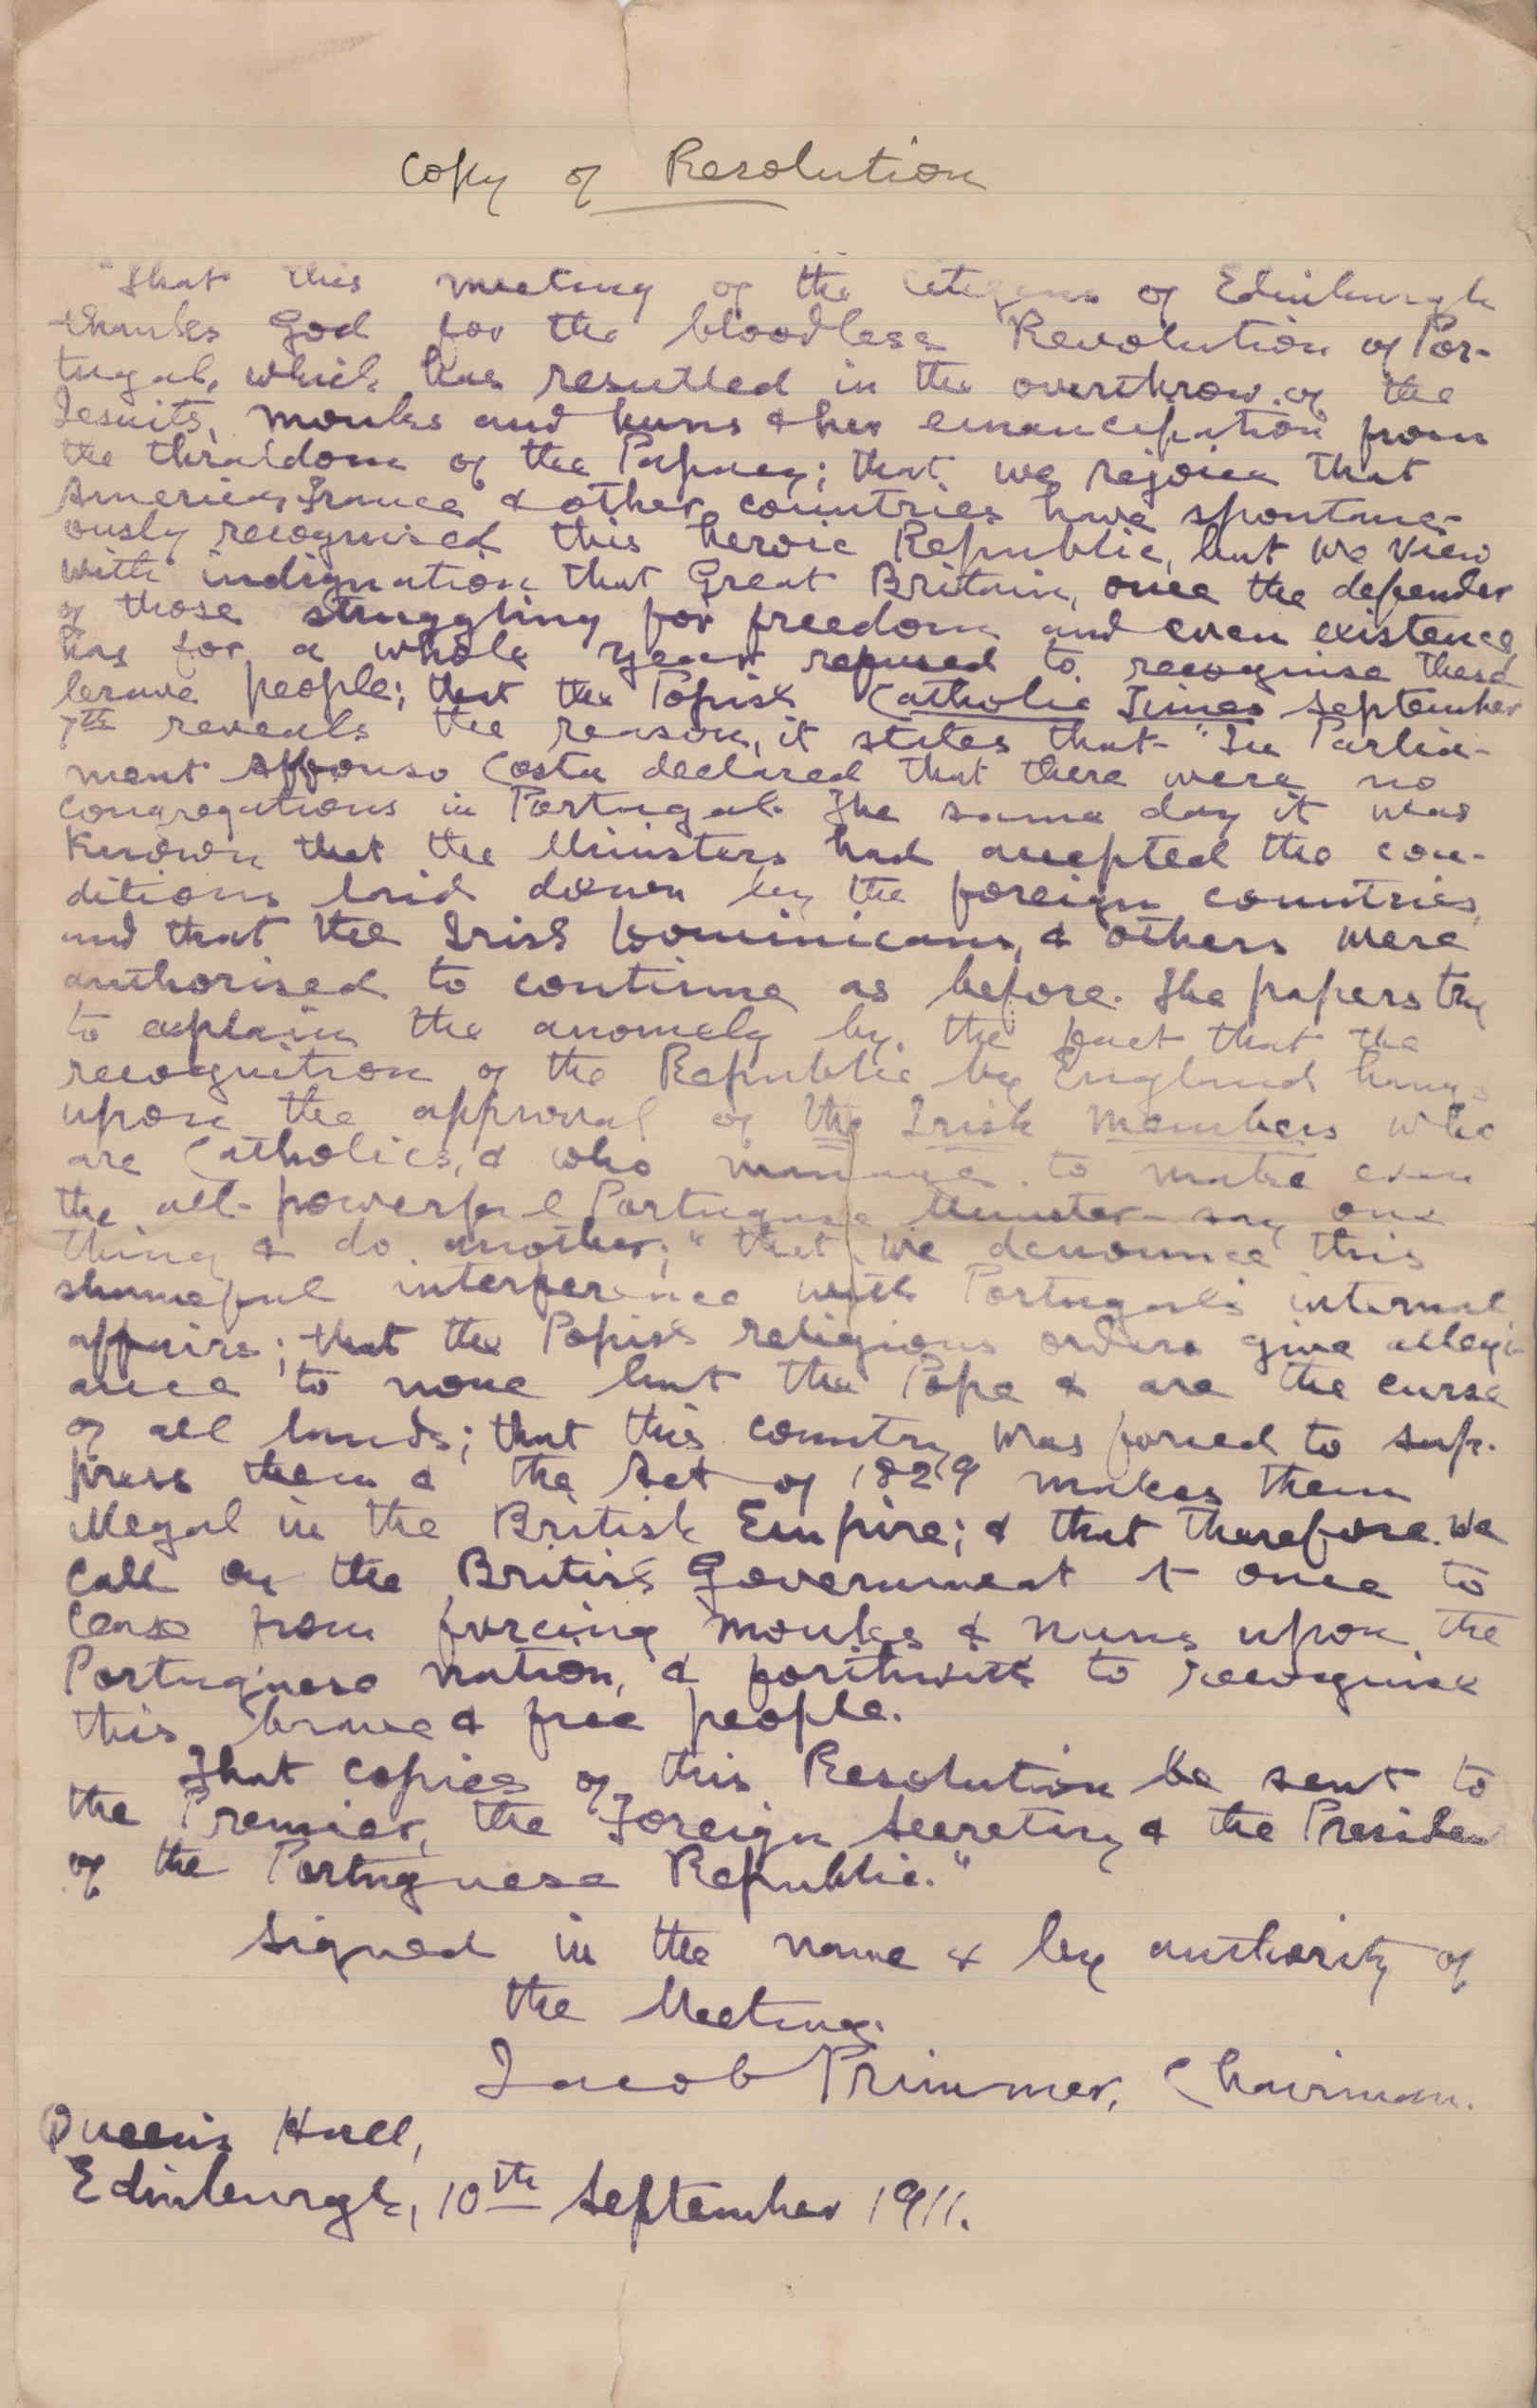 Copy of Resolution
"That this meeting of the Citizens of Edinburgh
thanks God for the bloodless Revolution of Por-
tugal, which has resulted in the overthrow of the
Jesuits, monks and nuns & her emancipation from
the thraldom of the Papacy; that we rejoice that
America, France & other countries have spontane-
ously recognised this heroic Republic, but we view
with indignation that Great Britain, once the defender
of those struggling for freedom and even existence,
has for a whole year refused to recognise these
brave people; that the Popish Catholic Times September
7th reveals the reason, it states that "In Parlia-
ment Affonso Costa declared that there were no
congregations in Portugal. The same day it was
known that the Ministers had accepted the con-
ditions laid down by the foreign countries,
and that the Irish Dominicans, & others were
authorised to continue as before. The papers try
to explain the anomely by the fact that the
recognition of the Republic by England hangs
upon the approval of the Irish Members who
are Catholics, & who manage to make even
the all-powerful Portuguese Minister say one
thing & do another;" that we denounce this
shameful interference with Portugal's internal
affairs; that the Popish religious orders give allegi-
ance to none but the Pope & are the curse
of all lands; that this country was forced to sup-
press them & the Act of 1829 makes them
illegal in the British Empire; & that therefore we
call on the British Government at once to
cease from forcing monks & nuns upon the
Portuguese nation, & forthwith to recognise
this brave & free people.
That copies of this Resolution be sent to
the Premier, the Foreign Secretary & the President
of the Portuguese Republic."
Signed in the name & by authority of
the Meeting.
Jacob Primmer, Chairman.
Queen's Hall,
Edinburgh, 10th September 1911.